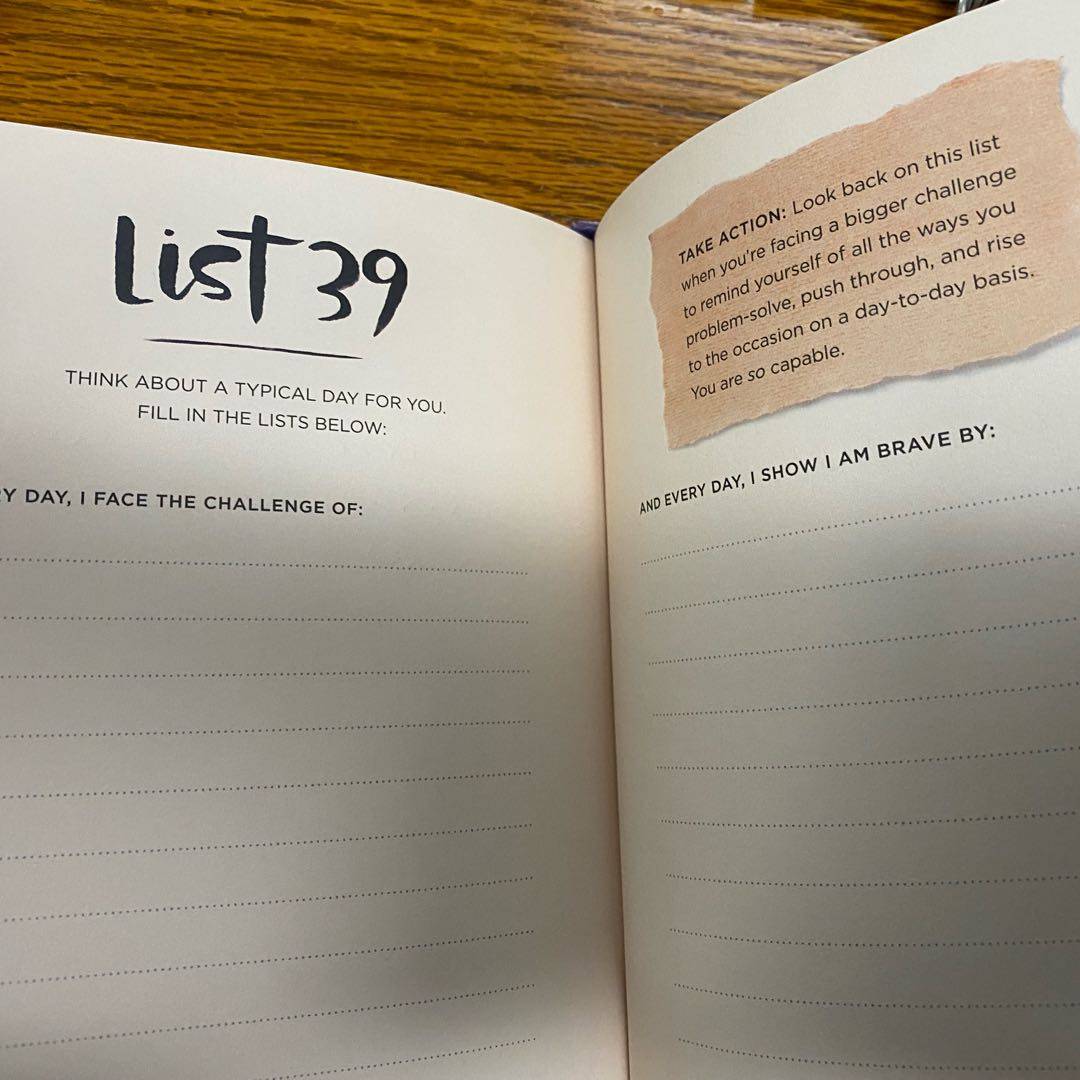 List 39
THINK ABOUT A TYPICAL DAY FOR YOU.
FILL IN THE LISTS BELOW:
Y DAY, I FACE THE CHALLENGE OF:
TAKE ACTION: Look back on this list
when you're facing a bigger challenge
to remind yourself of all the ways you
problem-solve, push through, and rise
to the occasion on a day-to-day basis.
You are so capable.
AND EVERY DAY, I SHOW I AM BRAVE BY: